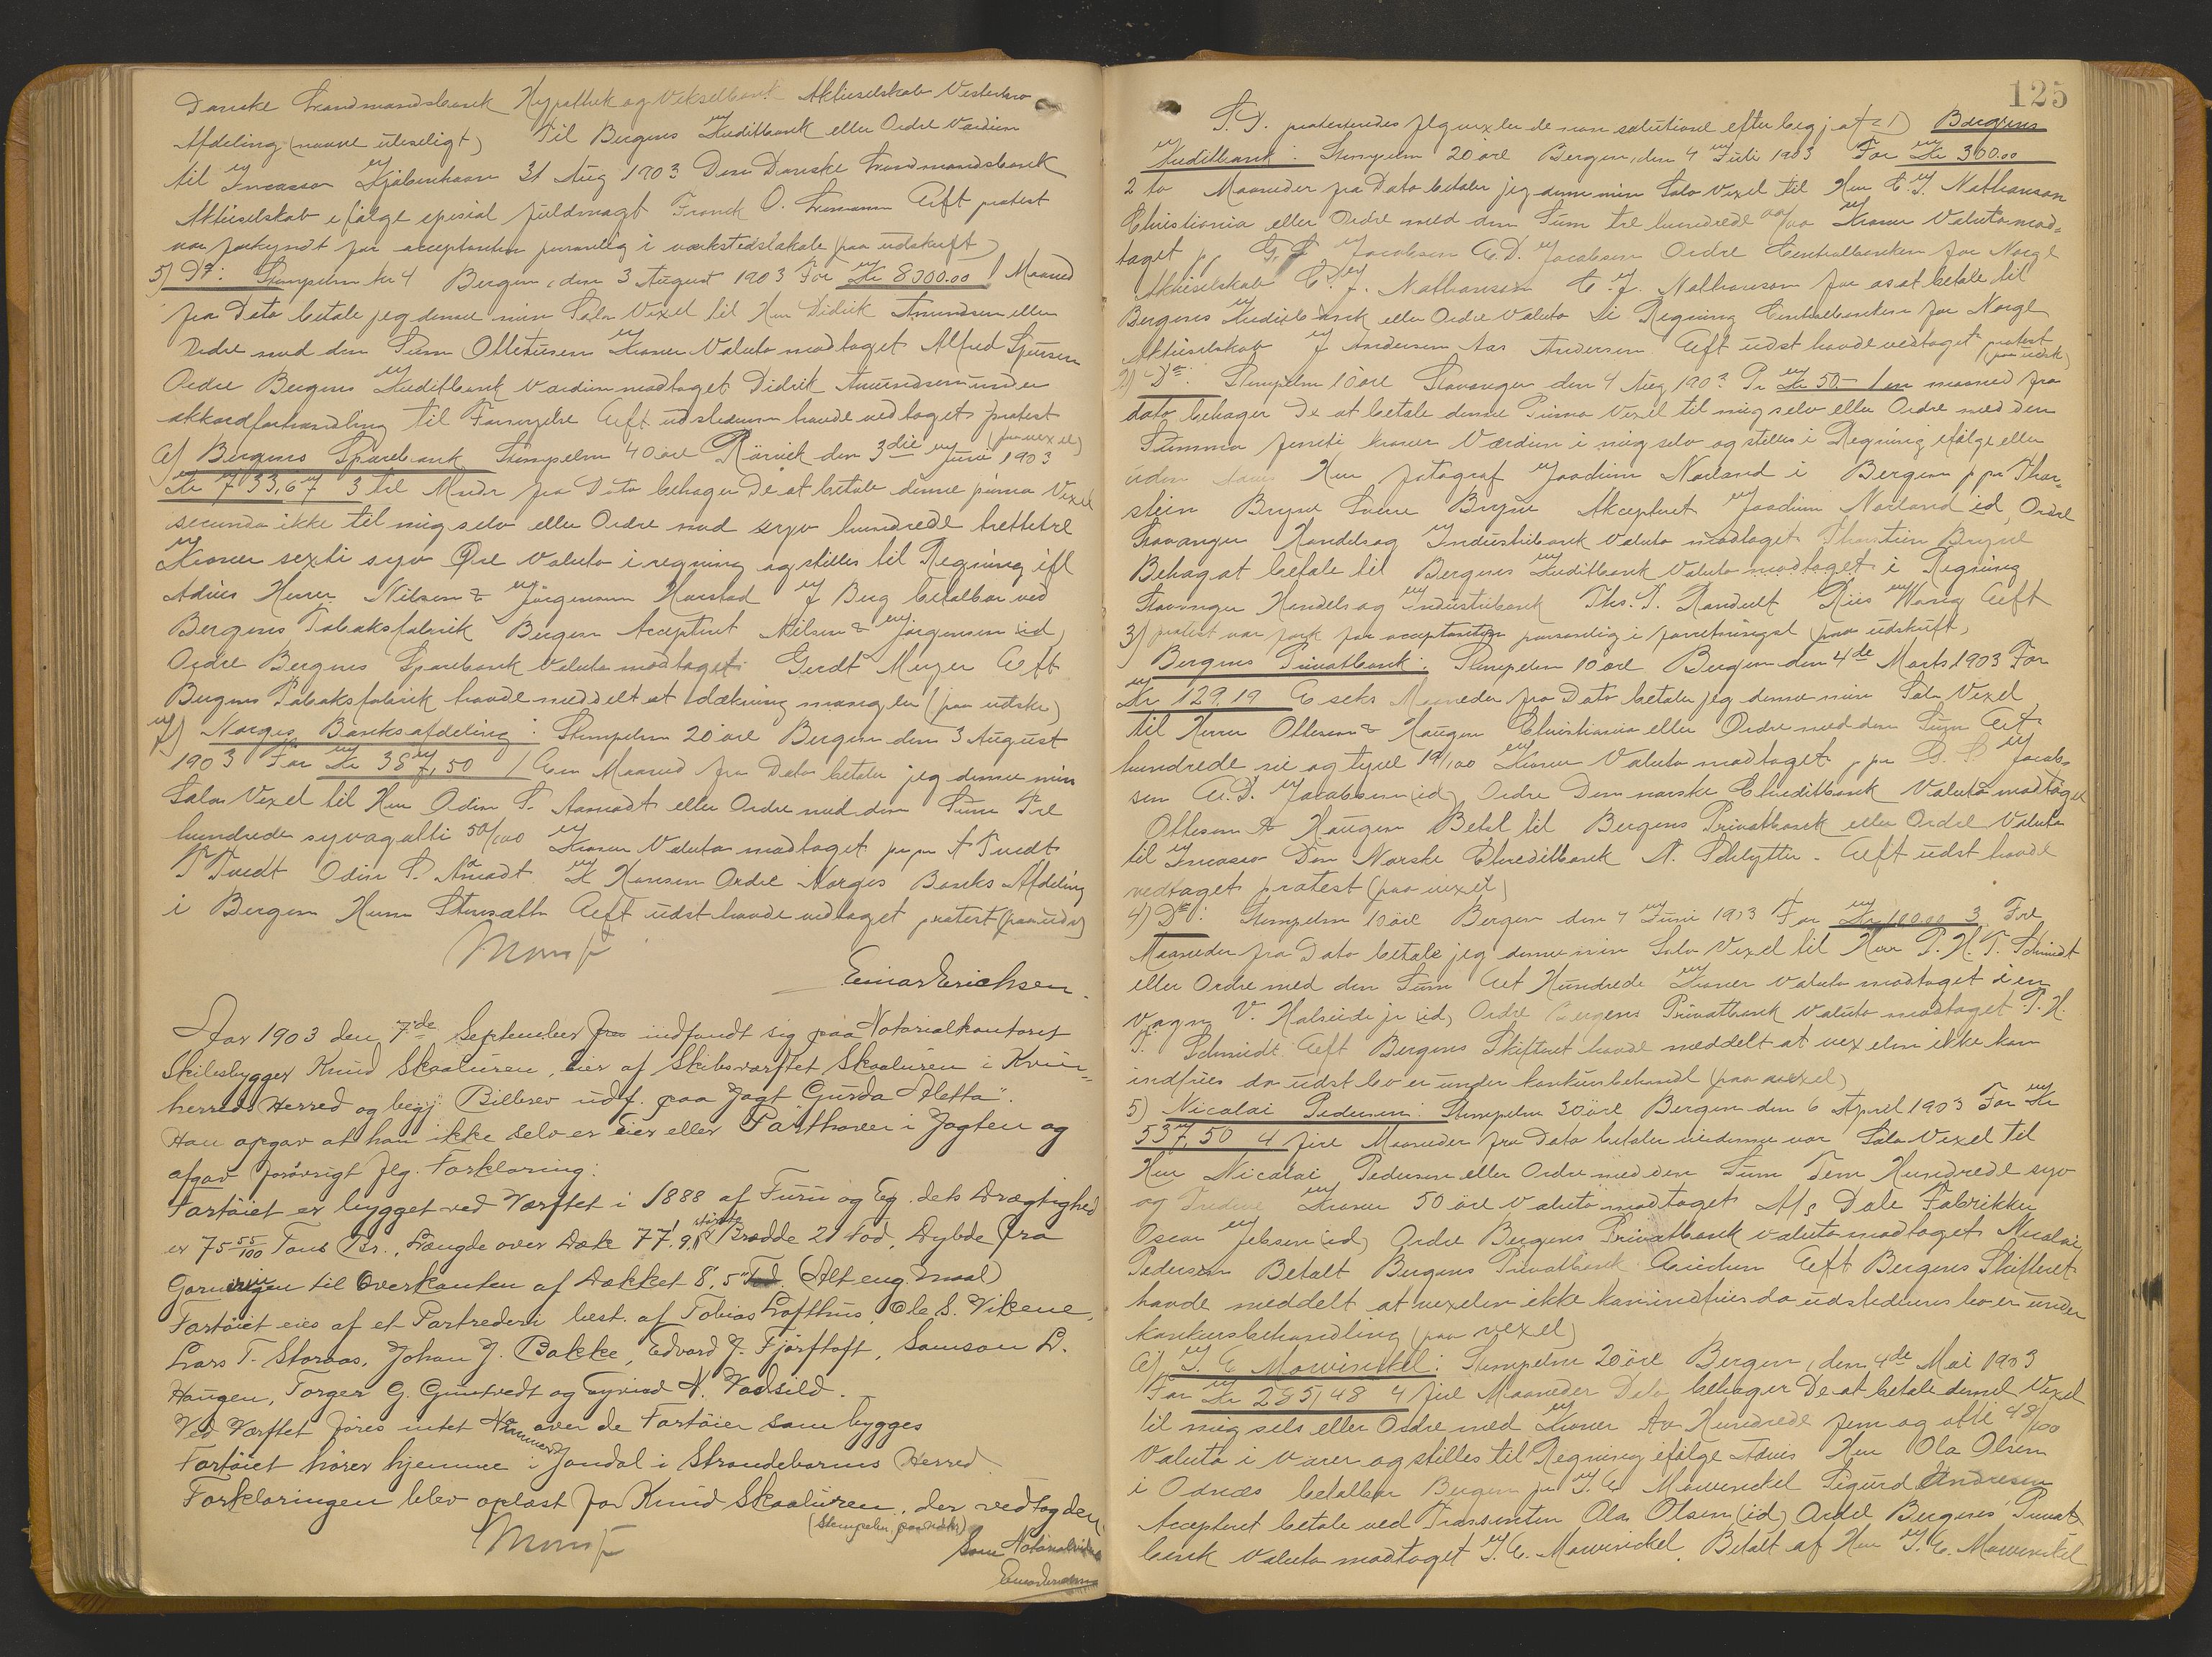 Danske Landmandsbank Hypothek og Vekselbank Aktieselskab Vesterbro
Afdeling (navne uleseligt) Til Bergens Kreditbank eller Ordre Værdien
til Incasso Kjöbenhavn 31 Aug 1903 Den Danske Landmandsbank
Aktieselskab ifølge spesial fuldmagt Franck O. Aeft protest
var forkyndt for acceptanten personlig i værkstedslokale (paa udskrift)
5) Do: Stempelm kr 4 Bergen, den 3 August 1903 For Kr 8000.00 1 Maaned
fra Dato betale jeg denne min Sola Vexel til Herr Didrik Amundsen eller
Ordre med den Sum Ottetusen Kroner Valuta modtaget Alfred
Ordre Bergens Kreditbank Værdien modtaget Didrik Amundsen under
akkordforhandling til Fornyelse Aeft udstederen havde vedtaget protest
(paa vexel)
6) Bergens Sparebank Stempelm 40 öre Rörvik den 3die Juni 1903
Kr 733,67 3 tre Mndr fra Dato behager De at betale denne prima Vexel
secunda ikke til mig selv eller Ordre med syv hundrede trettitre
Kroner sexti syv Øre Valuta i regning og stilles til Regning ifl
Advis Herrer Nilsen & Jörgensen Harstad J Berg betalbar ved
Bergens Tobaksfabrik Bergen Accepteret Nilsen & Jörgensen (id)
Ordre Bergens Sparebank Valuta modtaget Gerdt Meyer Aeft
Bergens Tobaksfabrik havde meddelt at dækning mangler (paa udskr)
7) Norges Banksafdeling: Stempelm 20 öre Bergen den 3 August
1903 For Kr 387,50 1 Een Maaned fra Dato betaler jeg denne min
Sola Vexel til Herr Odin S. Aamodt eller Ordre med den Sum Tre
hundrede syv og otti 50/100 Kroner Valuta modtaget pr pr A Tvedt
T Tvedt Odin S. Åmodt K Hansen Ordre Norges Banks Afdeling
i Bergen Aeft udst havde vedtaget protest (paa udsk)
Einar Erichsen.
Aar 1903 den 7de September indfandt sig paa Notarialkontoret
Skibsbygger Knud Skaaluren, Eier af Skibsværftet Skaaluren i Kvin-
herreds Herred og begj. Bilbrev udf. paa Jagt "Gurda Aletta".
Han opgav at han ikke selv er Eier eller Parthaver i Jagten og
afgav forøvrigt flg. Forklaring:
Fartøiet er bygget ved Værftet i 1888 af Furu og Eg, dets Drægtighed
er 75 55/100 Tons Br., Længde over Dæk 77'.9" største Bredde 21 Fod, Dybde fra
Garneringen til Overkanten af Dækket 8'.5" (Alt eng. maal)
Fartøiet eies af et Partrederi best. af Tobias Lofthus, Ole S. Vikene,
Lars T. Storaas, Johan J. Bakke, Edvard J. Fjørstoft, Samson L.
Haugen, Torger G. Guntvedt og Eyvind N. Vadseld.
Ved Værftet føres intet Nummer over de Fartøier som bygges
Fartøiet hører hjemme i Jondal i Strandebarms Herred.
Forklaringen blev oplæst for Knud Skaaluren, der vedtog den.
(Stempelm paa udskr)
Som Notarialvidne
125
S.D. protesteredes flg vexler de non solutione efter begj af: 1) Bergens
Kreditbank: Stempelm 20 öre Bergen, den 4 Juli 1903 For Kr 300.00
2 to Maaneder fra Dato betaler jeg denne min Sola Vexel til Herr C. J. Nathanson
Christiania eller Ordre med den Sum tre hundrede 00/100 Kroner Valuta mod-
taget pp G. S Jacobsen A. D. Jacobsen Ordre Centralbanken for Norge
Aktieselskab C. J. Nathanson C. J. Nathanson for os at betale til
Bergens Kreditbank eller Ordre Valuta i Regning Centralbanken for Norge
Aktieselskab J Andersen Aas Andersen Aeft udst havde vedtaget protest
(paa udsk)
2) Do: Stempelm 10 öre Stavanger den 4 Aug 1903 Pr Kr 50- 1 en maaned fra
dato behager De at betale denne Prima Vexel til mig selv eller Ordre med den
Summa femti kroner Værdien i mig selv og stilles i Regning ifølge eller
uden Herr fotograf Joachim Norland i Bergen p pr Thor-
stein Bryne Bryne Accepteret Joachim Norland id, Ordre
Stavanger Handels og Industribank Valuta modtaget Thorstein Bryne
Behag at betale til Bergens Kreditbank Valuta modtaget i Regning
Stavanger Handels og Industribank Ths. S. Randulf Riis Wang Aeft
protest var fork for acceptanten personlig i forretningsl (paa udskrift)
3) Bergens Privatbank: Stempelm 10 öre Bergen den 4de Marts 1903 For
Kr 129.19 6 seks Maaneder fra Dato betaler jeg denne min Sola Vexel
til Herrer Ottesen & Haugen Christiania eller Ordre med den Sum Et
hundrede ni og tyve 19/100 Kroner Valuta modtaget, pr G. S Jacob-
sen A. D. Jacobsen (id) Ordre Den norske Creditbank Valuta modtaget
Ottesen & Haugen Betal til Bergens Privatbank eller Ordre Valuta
til Incasso Den Norske Creditbank N. Schlytter. Aeft udst havde
vedtaget protest (paa vexel)
4) Do: Stempelm 10 öre Bergen den 4 Juni 1903 For Kr 100.00 3 Tre
Maaneder fra Dato betale jeg denne min Sola Vexel til Herr P. H. T. Schmidt
eller Ordre med den Sum Et Hundrede Kroner valuta modtaget i en
Vogn V. Halseide jr (id) Ordre Bergens Privatbank valuta modtaget P. H.
T. Schmidt Aeft Bergens Skifteret havde meddelt at vexelen ikke kan
indfries da udst bo er under konkursbehandl (paa vexel)
5) Nicolai Pedersen: Stempelm 30 öre Bergen den 6 April 1903 For Kr
537,50 4 fire Maaneder fra Dato betaler vi denne vor Sola Vexel til
Herr Nicolai Pedersen eller Ordre med den Sum Fem Hundrede syv
og Tredive Kroner 50 öre Valuta modtaget A/s Dale Fabrikker
Oscar Jebsen (id) Ordre Bergens Privatbank valuta modtaget Nicolai
Pedersen Betalt Bergens Privatbank Aeft Bergens Skifteret
havde meddelt at vexelen ikke kan indfries da udstederens bo er under
konkursbehandling (paa vexel)
6) J. E Mowinckel: Stempelm 20 öre Bergen, den 4de Mai 1903
For Kr 285,48 4 fire Maaneder Dato behager De at betale denne Vexel
til mig selv eller Ordre med Kroner to Hundrede fem og otti 48/100
Valuta i varer og stilles til Regning ifølge Advis Herr Ola Olsen
i Odnæs betalbar Bergen pr J. E Mowinckel Sigurd Andresen
Accepteret betale ved Trassenten Ola Olsen (id) Ordre Bergens Privat-
bank Valuta modtaget J. E. Mowinckel. Betalt af Herr J. E. Mowinckel